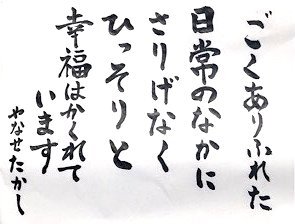 ごくありふれた
日常のなかに
さりげなく
ひっそりと
幸福はかくれて
います
やなせたかし